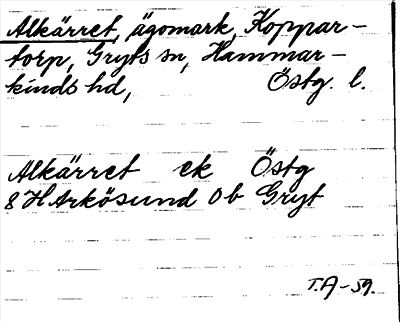 Alkärret, ägomark, Koppar-
torp, Gryts sn, Hammar-
kinds hd, Östg. l.
Alkärret ek Östg
8H Arkösund 0b Gryt
T.A-59.